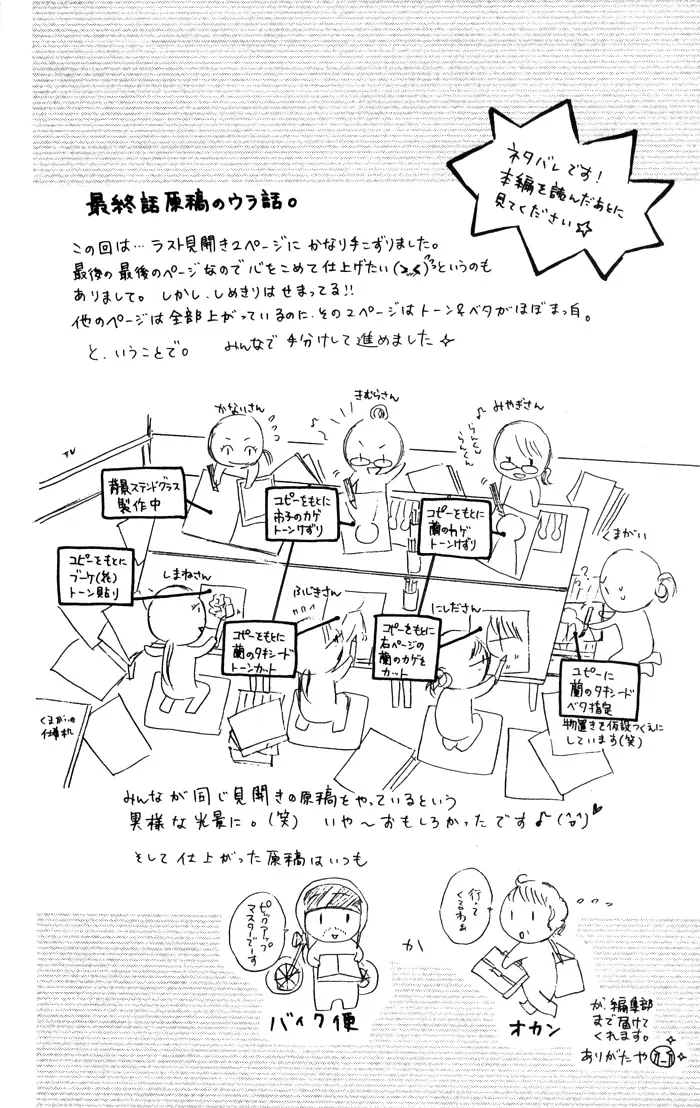 ネタバレです!
本編を読んだあとに
見てください☆
最終話原稿のウラ話。
この回は…ラスト見開き2ページに かなり手こずりました。
最後の最後のページなので心をこめて仕上げたい というのも
ありまして。しかし、しめきりはせまってる!!
他のページは全部上がっているのに、その2ページはトーン&ベタがほぼまっ白。
と、いうことで。 みんなで手分けして進めました☆
かないさん
きむらさん
みやぎさん
♪
♪
らんらん
らんらん
TV
背景ステンドグラス
製作中
コピーをもとに
市子のカゲ
トーンけずり
コピーをもとに
蘭のカゲ
トーンけずり
くまがい
コピーをもとに
ブーケ(花)
トーン貼り
しまねさん
ふじきさん
にしださん
コピーをもとに
蘭のタキシード
トーンカット
コピーをもとに
右ページの
蘭のカゲを
カット
コピーに
蘭のタキシード
ベタ指定
物置きを仮設つくえに
しています(笑)
くまがいの
仕事机
みんなが同じ見開きの原稿をやっているという
異様な光景に。(笑) いや〜おもしろかったです♪
そして仕上がった原稿はいつも
ピックアップ
マスターです
バイク便
か
行って
くるわぁ
オカン
が編集部
まで届けて
くれます。
ありがたや